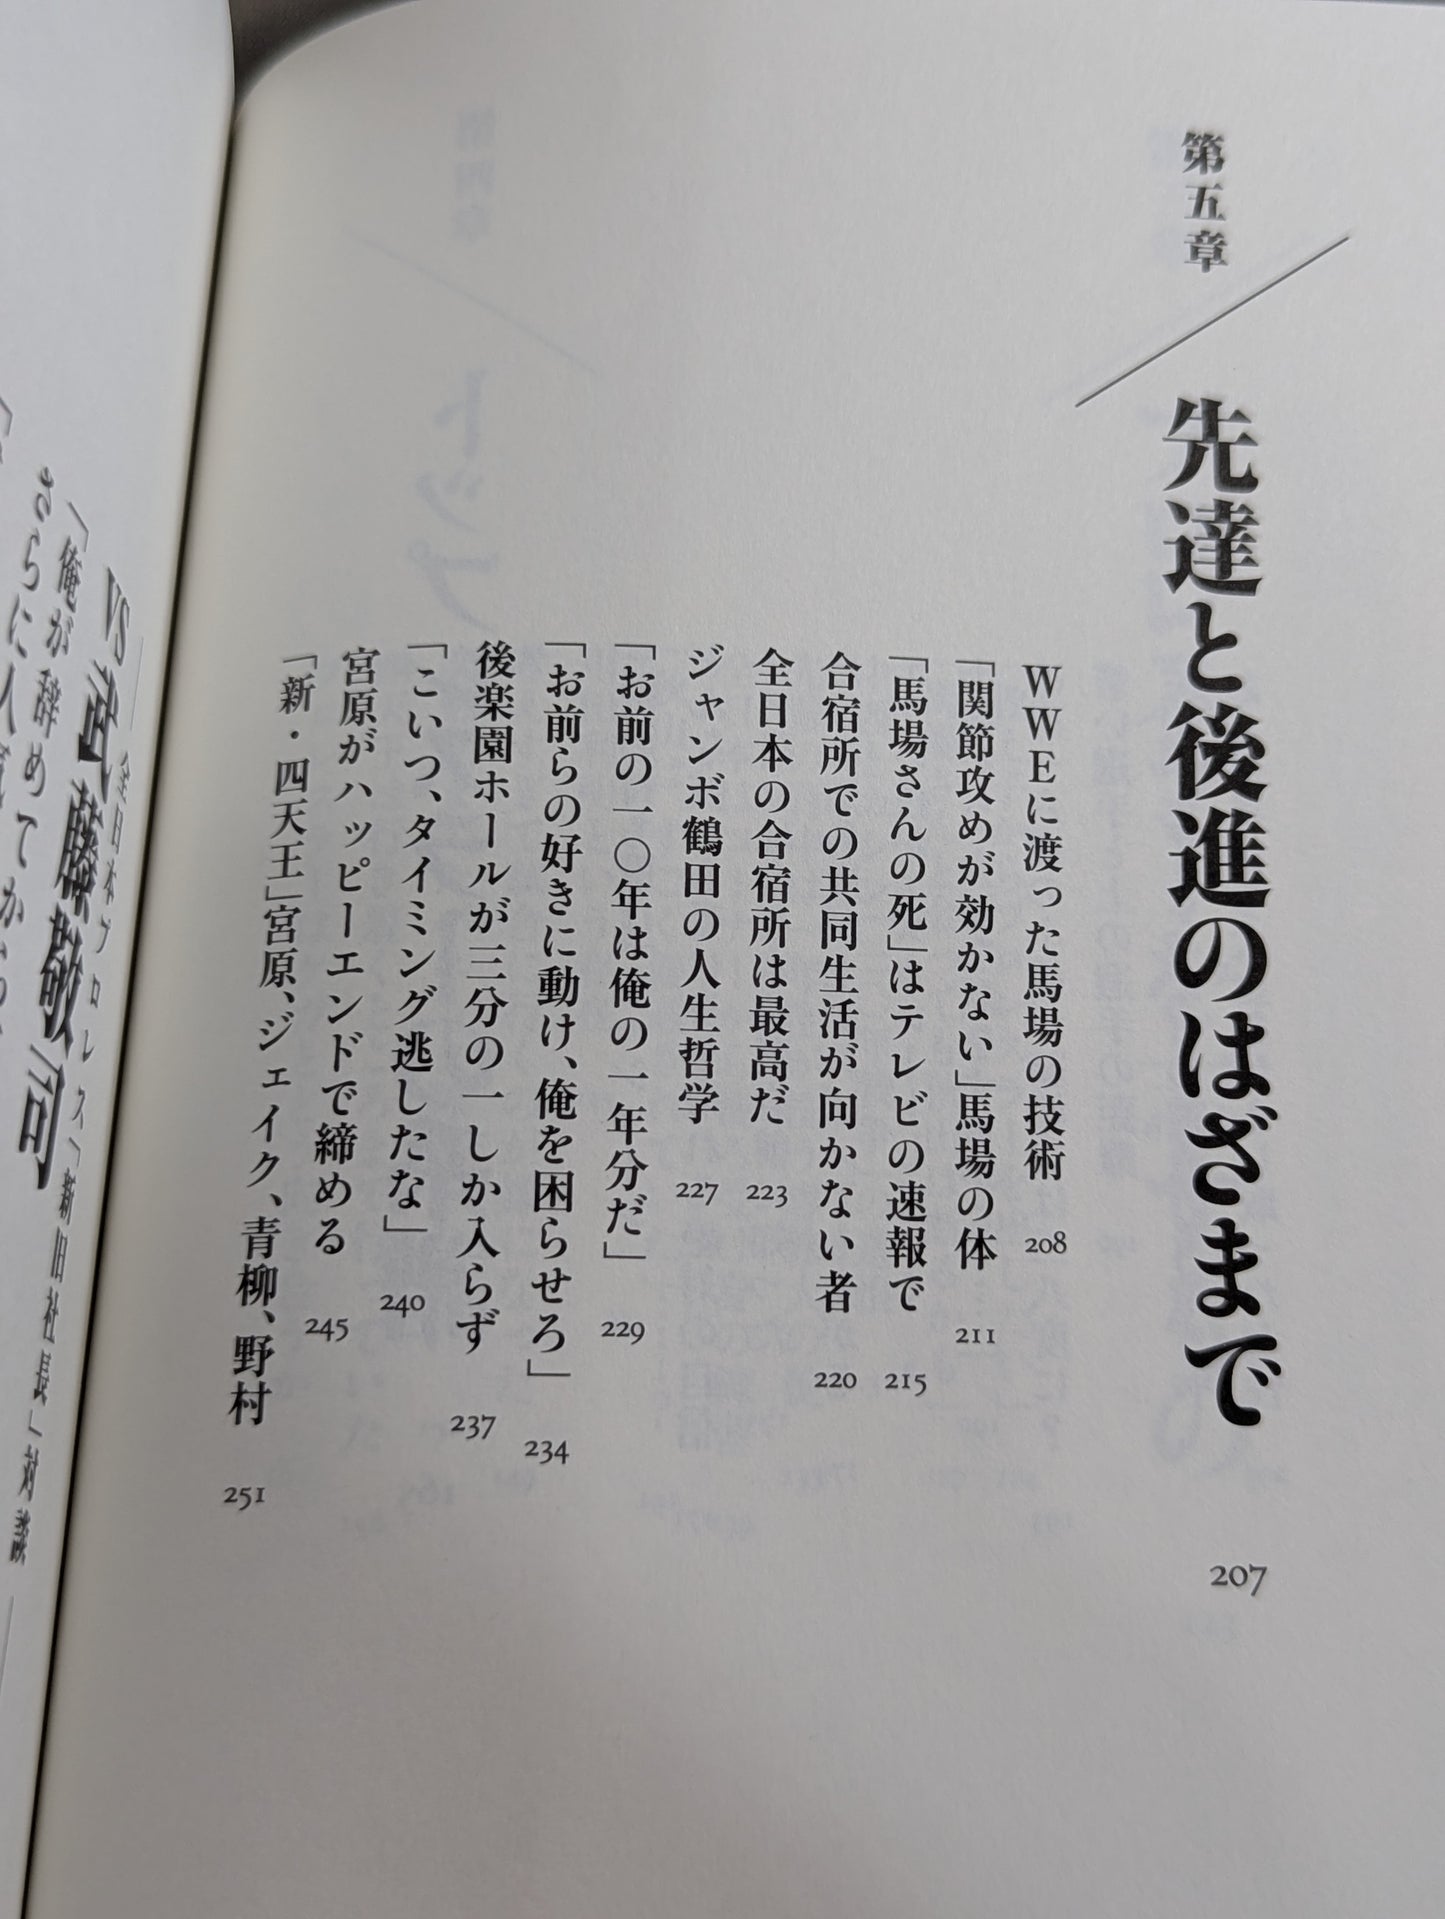 第五章
先達と後進のはざまで 207
WWEに渡った馬場の技術 208
「関節攻めが効かない」馬場の体 211
「馬場さんの死」はテレビの速報で 215
合宿所での共同生活が向かない者 220
全日本の合宿所は最高だ 223
ジャンボ鶴田の人生哲学 227
「お前の一〇年は俺の一年分だ」 229
「お前らの好きに動け、俺を困らせろ」 234
後楽園ホールが三分の一しか入らず 237
「こいつ、タイミング逃したな」 240
宮原がハッピーエンドで締める 245
「新・四天王」宮原、ジェイク、青柳、野村 251
全日本プロレス「新旧社長」対談
VS武藤敬司
「俺が辞めてから
さらに人